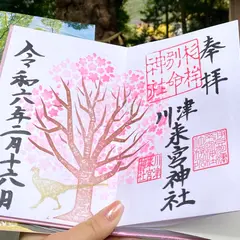 奉拝
杉桙
別命
神社
川津来宮神社
令和六年二月十六日